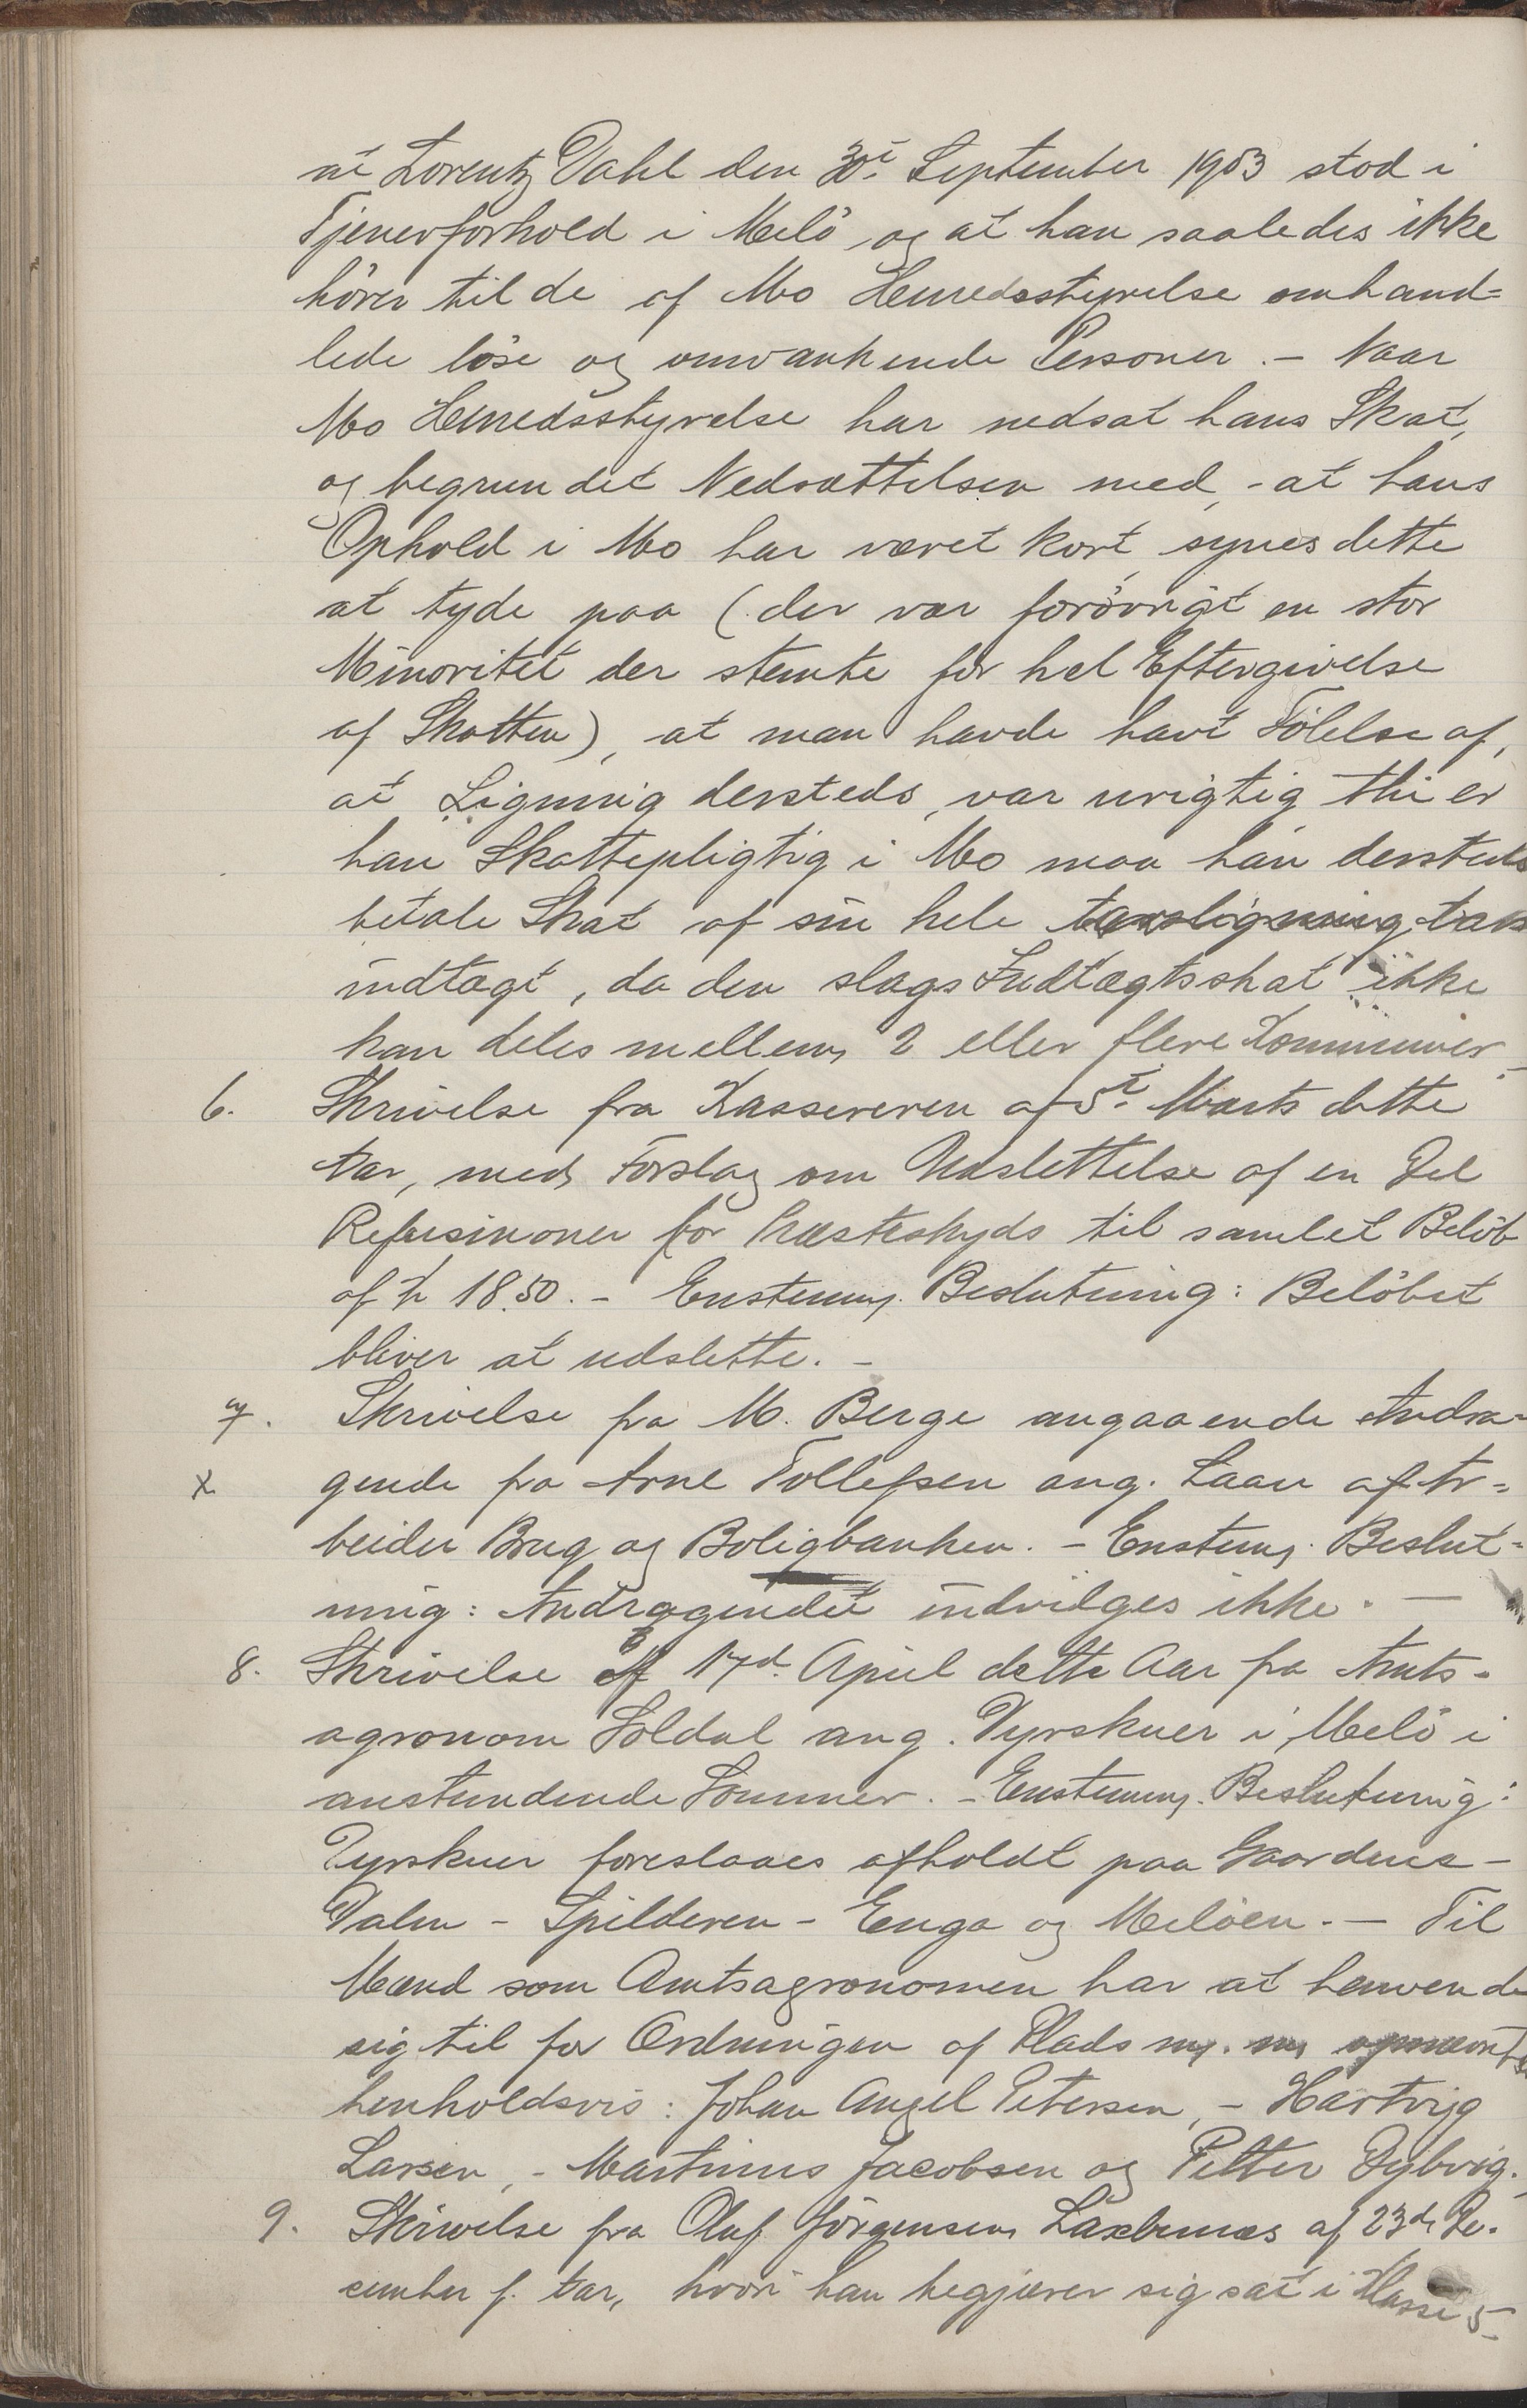 at Lorentz Dahl den 30te September 1903 stod i
Tjenerforhold i Melö og at han saaledes ikke
hörer til de af Mo Herredsstyrelse omhand=
lede löse og omvankende Personer. - Naar
Mo Herredsstyrelse har nedsat hans Skat,
og begrundet Nedsættelsen med, - at hans
Ophold i Mo har været kort, synes dette
at tyde paa (der var forövrigt en stor
Minoritet der stemte for hel Eftergivelse
af Skatten), at man havde havt Fölelse af,
at Ligning dersteds, var urigtig thi er
han Skattepligtig i Mo maa han dersteds
betale Skat af sin hele
indtægt, da den slags Indtægtsskat ikke
kan deles mellem 2 eller flere Kommuner. -
6. Skrivelse fra Kassereren af 5te Marts dette
Aar, med Forslag om Udslettelse af en Del
Refusioner for Præsteskyds til samlet Belöb
af Kr 18.50. - Enstemmg. Beslutning: Belöbet
bliver at udslette. -
7. Skrivelse fra M. Berge angaaende Andra-
x gende fra Arne Tollefsen ang. Laan af Ar=
beider Brug og Boligbanken. - Enstemg. Beslut=
ning: Andragendet indvilges ikke. -
8. Skrivelse af 17d. April dette Aar fra Amts-
agronom Soldal ang. Dyrskuer i Melö i
anstundende Sommer. - Enstemmg. Beslutning:
Dyrskuer foreslaaes afholdt paa Gaardene -
Dalen - Spilderen - Enga og Melöen. - Til
Mænd som Amtsagronomen har at henvende
sig til for Ordningen af Plads m. m. opnævntes
henholdsvis: Johan Angel Petersen, - Hartvig
Larsen, - Martinus Jacobsen og Petter Dybvig.
9. Skrivelse fra Oluf Jörgensen af 23de De-
cember f. Aar, hvori han begjærer sig sat i Klasse 5 -